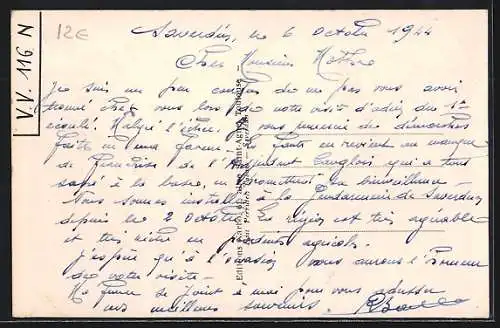 12€
V.V. 116 N
Saverdun, le 6 Octobre 1944
Cher Monsieur
Je suis un peu confus de ne pas vous avoir
trouvé chez vous lors de notre visite d'adieu du 1er
écoulé. Malgré l'échec, vous remercie des démarches
faites en ma faveur. La faute en revient au manque
de franchise de l'Adjudant Langlois qui a tout
sapé à la base, en promettant sa bienveillance -
Nous sommes installés à la Gendarmerie de Saverdun
depuis le 2 Octobre. La région est très agréable
et très riche en produits agricols.
J'espère qu'à l'occasion nous aurons l'honneur
de votre visite -
Ma femme se joint à moi pour vous adresser
nos meilleurs souvenirs.